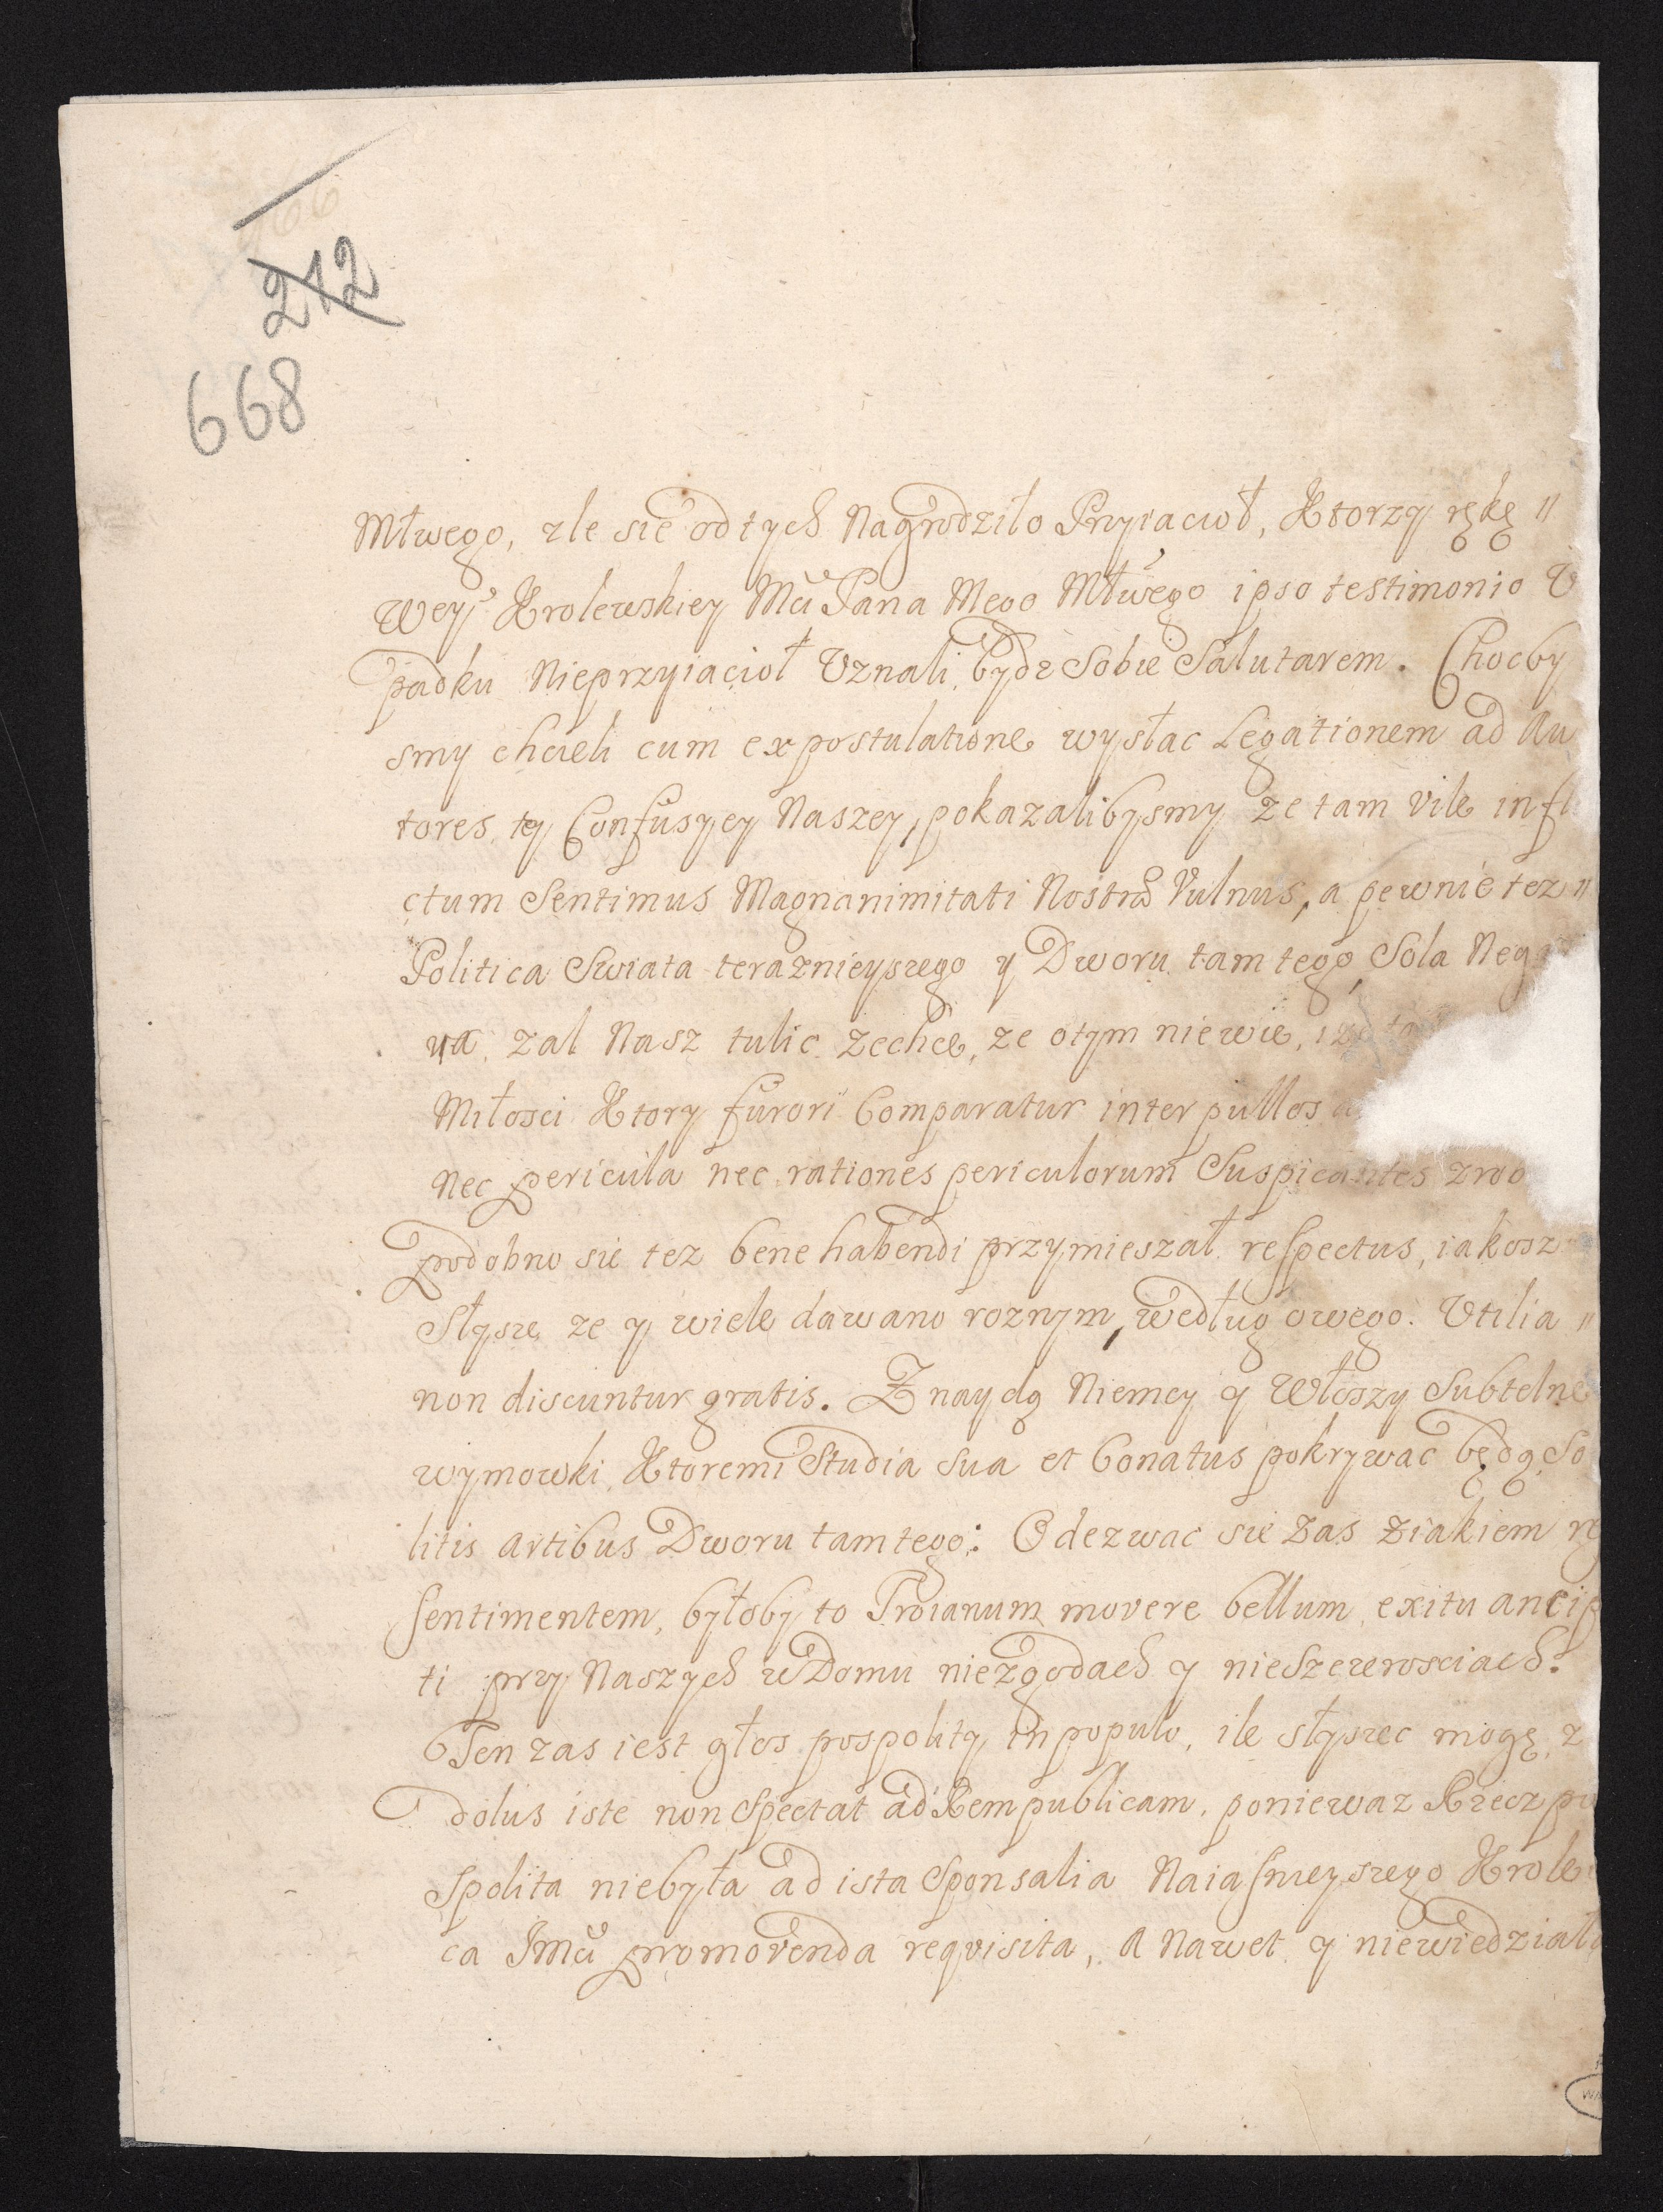 212
668
Młwego, zle się od tych Nagrodziło Przyiacioł, Ktorzy rękę //
Wey Krolewskiey Mći Pana Mego Młwego ipso testimonio V
padku Nieprzyiacioł Vznali bydz Sobie Salutarem. Chocby
smy chcieli cum expostulatione wysłac Legationem ad Au
tores tej Confusyey Naszey, pokazalibysmy ze tam vile infli
ctum Sentimus Magnanimitati Nostræ Vulnus, a pewnie tez //
Politica Swiata teraznieyszego y Dworu tamtego, Sola Nega
va zal Nasz tulic zechce, ze otym niewie, ize
Miłosci Ktory furori Comparatur inter pullos
nec pericula nec rationes periculorum Suspicantes zrod
podobno się tez bene habendi przymieszał respectus, iakosz
Słysze ze y wiele dawano roznym, według owego. Vtilia //
non discuntur gratis. Znaydą Niemcy y Włoszy Subtelne
wymowki, Ktoremi Studia Sua et Conatus pokrywac będą So
litis artibus Dworu tamtego: Odezwac się zas ziakiem
sentimentem, byłoby to Troianum movere bellum exitu ancip
ti przy Naszych w Domu niezgodach y nieszczerosciach.
Ten zas iest głos pospolity in populo, ile słyszec mogę, z
dolus iste non Spectat ad Rempublicam, poniewaz Rzeczpo
Spolita niebyła ad ista Sponsalia Naiasnieyszego Krolewi
ca Imći promovenda requisita, A Nawet y niewiedziała